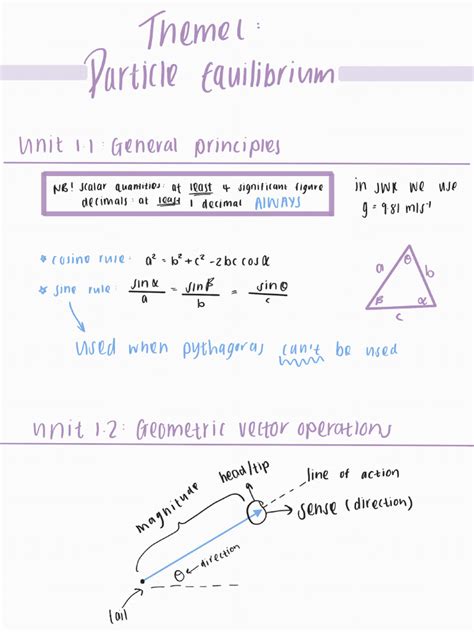 Theme 1:
Particle Equilibrium
Unit 1.1: General principles
NB! scalar quantities: at least 4 significant figure
decimals: at least 1 decimal ALWAYS
in SWK we use
g = 9.81 m/s⁻¹
* cosine rule: a² = b² + c² - 2bc cos α
* sine rule: sin α / a = sin β / b = sin θ / c
θ
a b
β α
c
used when pythagoras can't be used
Unit 1.2: Geometric vector operation
head/tip
line of action
magnitude
sense (direction)
θ direction
tail